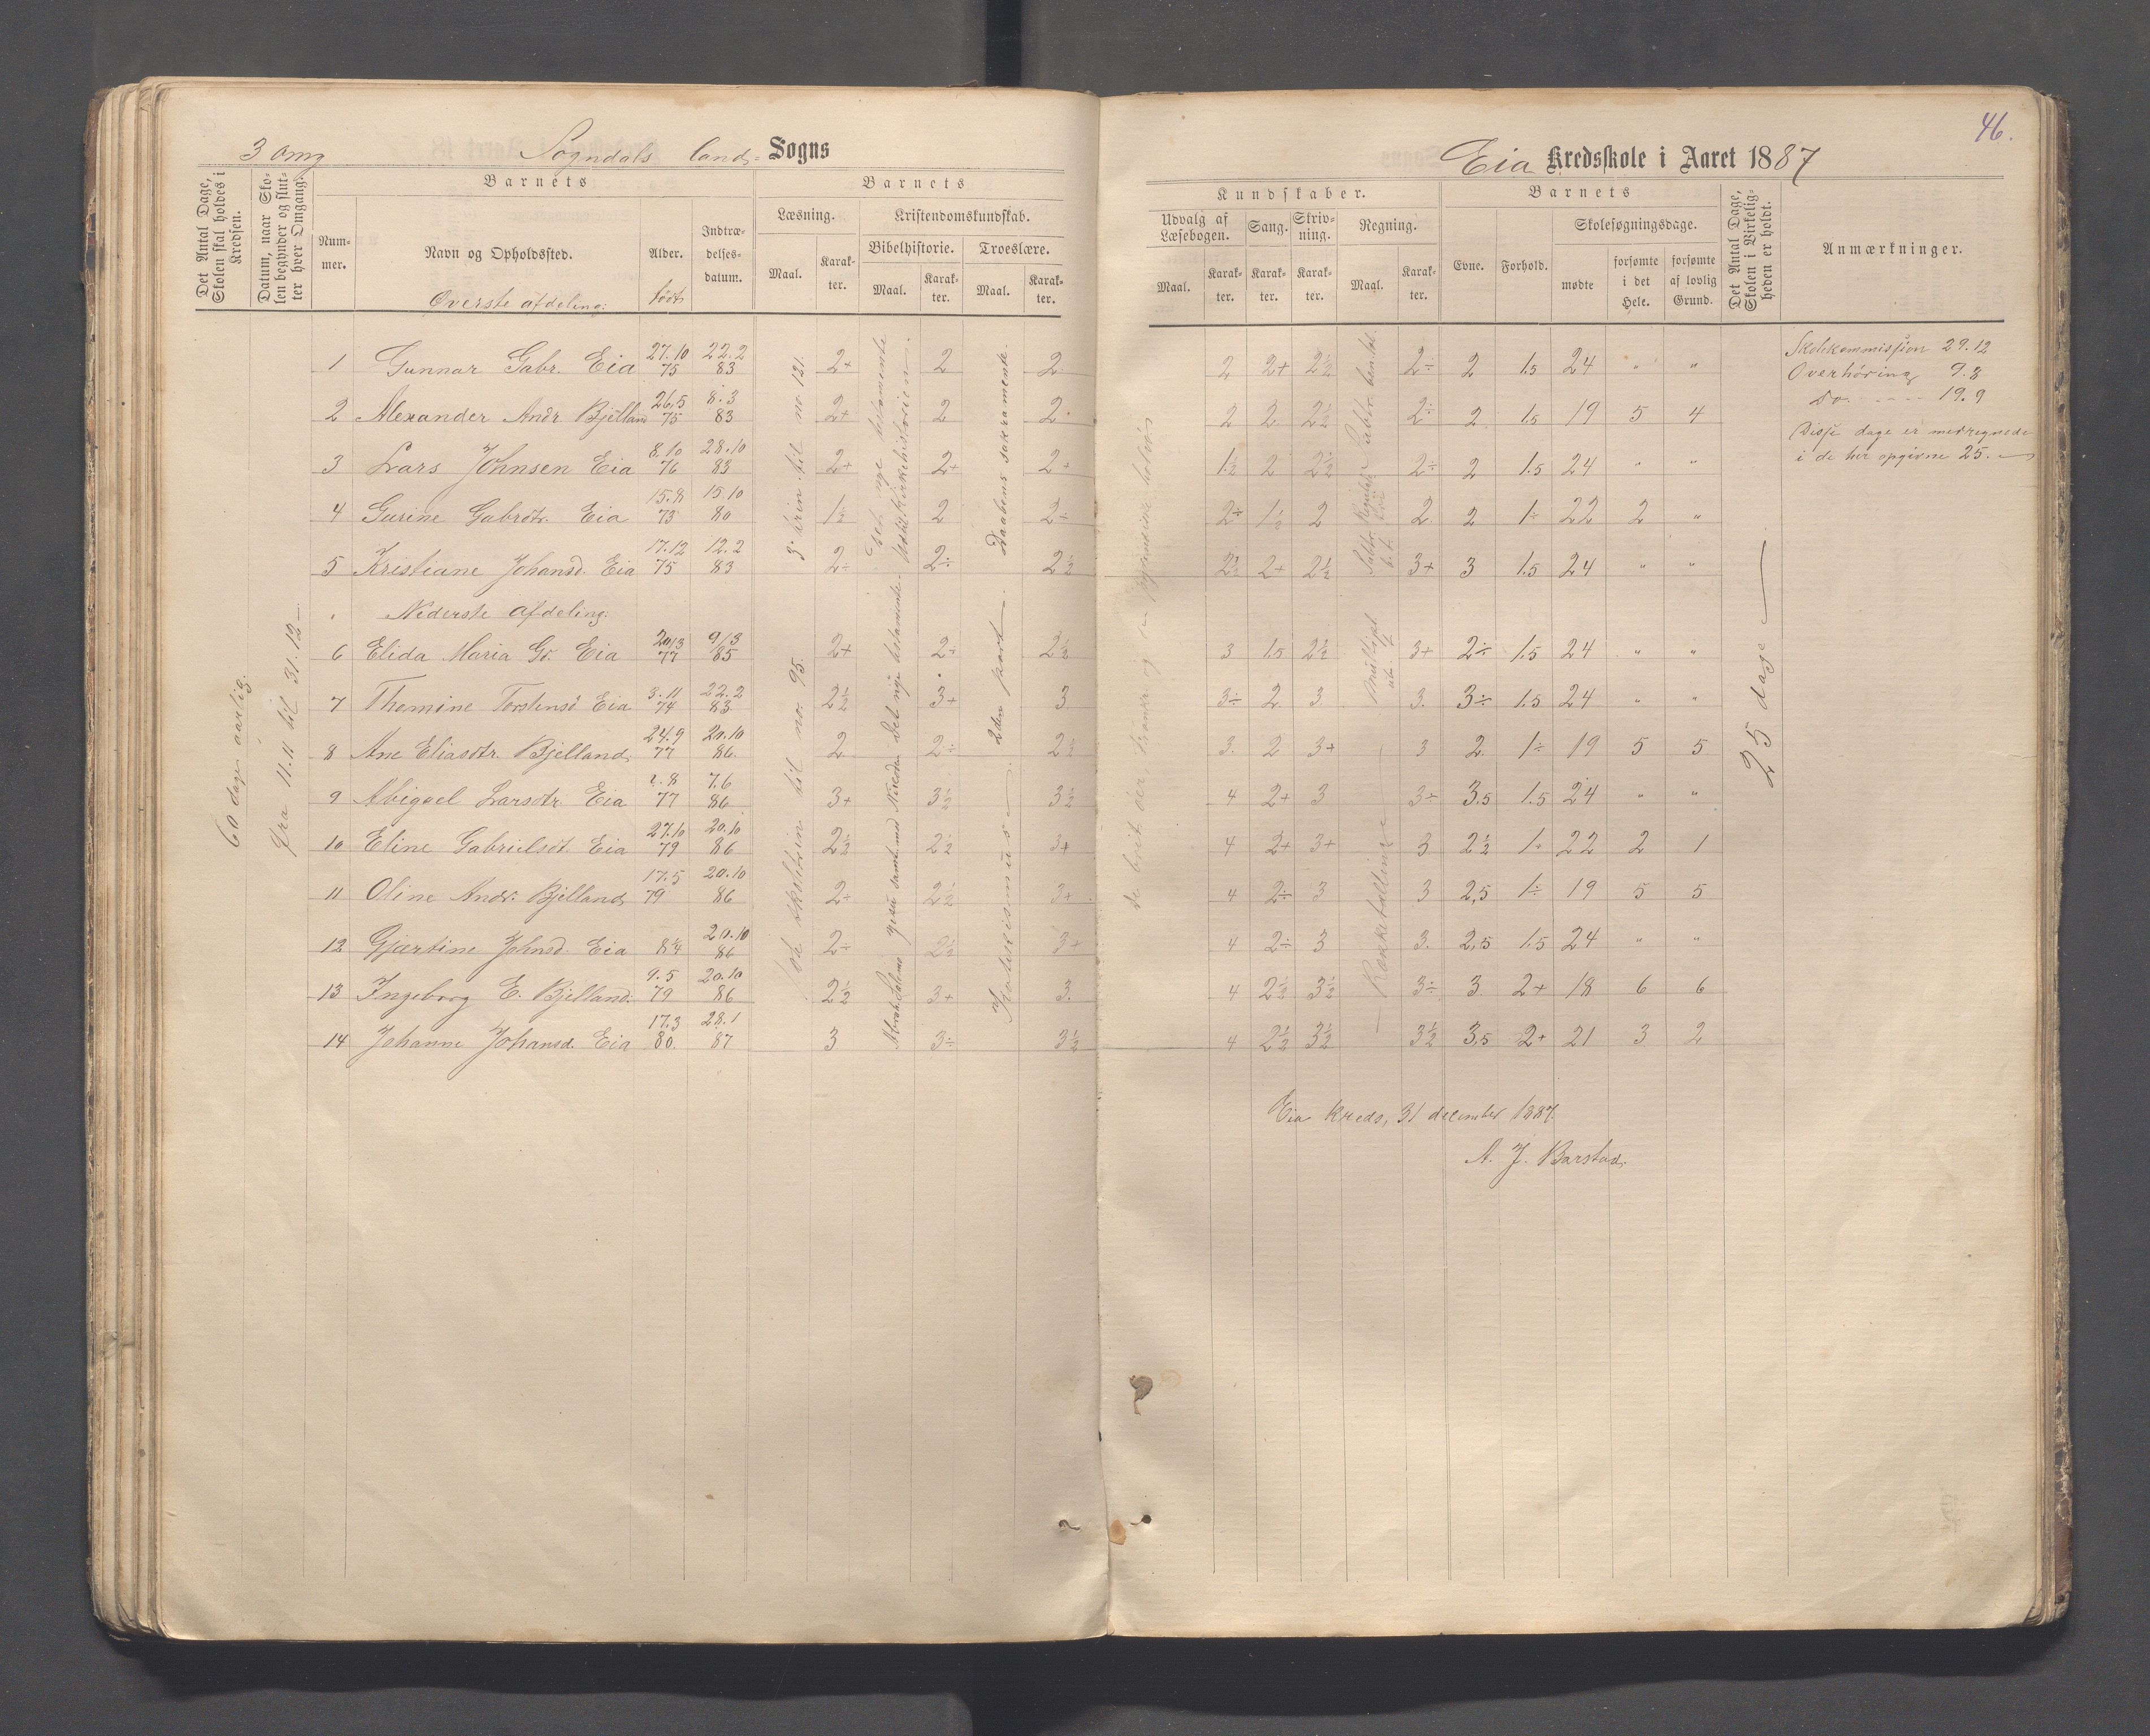 46.
3 omg
Sogndals land- Sogns
Eia Kredsskole i Aaret 1887
Det Antal Dage, Skolen skal holdes i Kredsen.
Datum, naar Skolen begynder og slutter hver Omgang.
Nummer.
Barnets
Navn og Opholdssted.
Alder.
født
Indtrædelsesdatum.
Barnets
Læsning.
Maal.
Karakter.
Kristendomskundskab.
Bibelhistorie.
Maal.
Karakter.
Troeslære.
Maal.
Karakter.
Kundskaber.
Udvalg af Læsebogen.
Maal.
Karakter.
Sang.
Karakter.
Skrivning.
Karakter.
Regning.
Maal.
Karakter.
Barnets
Evne.
Forhold.
Skolesøgningsdage.
mødte
forsømte i det Hele.
forsømte af lovlig Grund.
Det Antal Dage, Skolen i Virkeligheden er holdt.
Anmærkninger.
60 dage aarlig.
Fra 11.11 til 31.12
Øverste afdeling:
1 Gunnar Gabr. Eia 27.10 75 22.2 83 2+ 2 2 2 2+ 2½ 2÷ 2 1.5 24 " "
2 Alexander Andr Bjelland 26.5 75 8.3 83 2+ 2 2 2 2 2½ 2÷ 2 1.5 19 5 4
3 Lars Johnsen Eia 8.10 76 28.10 83 2+ 2+ 2+ 1½ 2 2½ 2÷ 2 1.5 24 " "
4 Gurine Gabrdtr. Eia 15.8 73 15.10 80 1½ 2 2÷ 2÷ 1½ 2 2 2 1÷ 22 2 "
5 Kristiane Johansd. Eia 17.12 75 12.2 83 2÷ 2÷ 2½ 2½ 2+ 2½ 3+ 3 1.5 24 " "
Nederste afdeling:
6 Elida Maria G. Eia 20/3 77 9/3 85 2+ 2+ 2½ 3 1.5 2½ 3+ 2÷ 1.5 24 " "
7 Thomine Torstensd Eia 3.11 74 22.2 83 2½ 3+ 3 3÷ 2 3 3. 3÷ 1.5 24 " "
8 Ane Eliasdtr. Bjelland 24.9 77 20.10 86. 2 2÷ 2½ 3. 2 3+ 3 2 1÷ 19 5 5
9 Abigael Larsdtr. Eia 77 7.6 86 3+ 3½ 3½ 4 2+ 3 3÷ 3.5 1.5 24 " "
10 Eline Gabrielsdt. Eia 27.10 79 20.10 86 2½ 2½ 3+ 4 2+ 3+ 3 2½ 1+ 22 2 1
11 Oline Andr. Bjelland 17.5 79 20.10 86 2÷ 2½ 3+ 4 2÷ 3 3 2,5 1÷ 19 5 5
12 Gjertine Johnsd. Eia 20.10 86 2÷ 2½ 3+ 4 2÷ 3 3. 2,5 1.5 24 " "
13 Ingeborg E. Bjelland. 9.5 79 20.10 86 2½ 3+ 3. 4 2½ 3½ 3÷ 3 2+ 18 6 6
14 Johanne Johansd. Eia 17.3 80. 28.1 87 3 3÷ 3½ 4 2½ 3½ 3½ 3,5 2+ 21 3 2
3. trin til no 121.
skoletrin til no. 95.
Det nye testamente
kirkehistorien.
Daabens sakramente.
2den part
Katekismus
Rækketælling
25 dage
Skolekommission 29.12
Overhøring 9.8
Do. - - - - 19.9
Disse dage er medregnede
i de her opgivne 25.
Eia kreds, 31 december 1887.
A. J. Barstad.